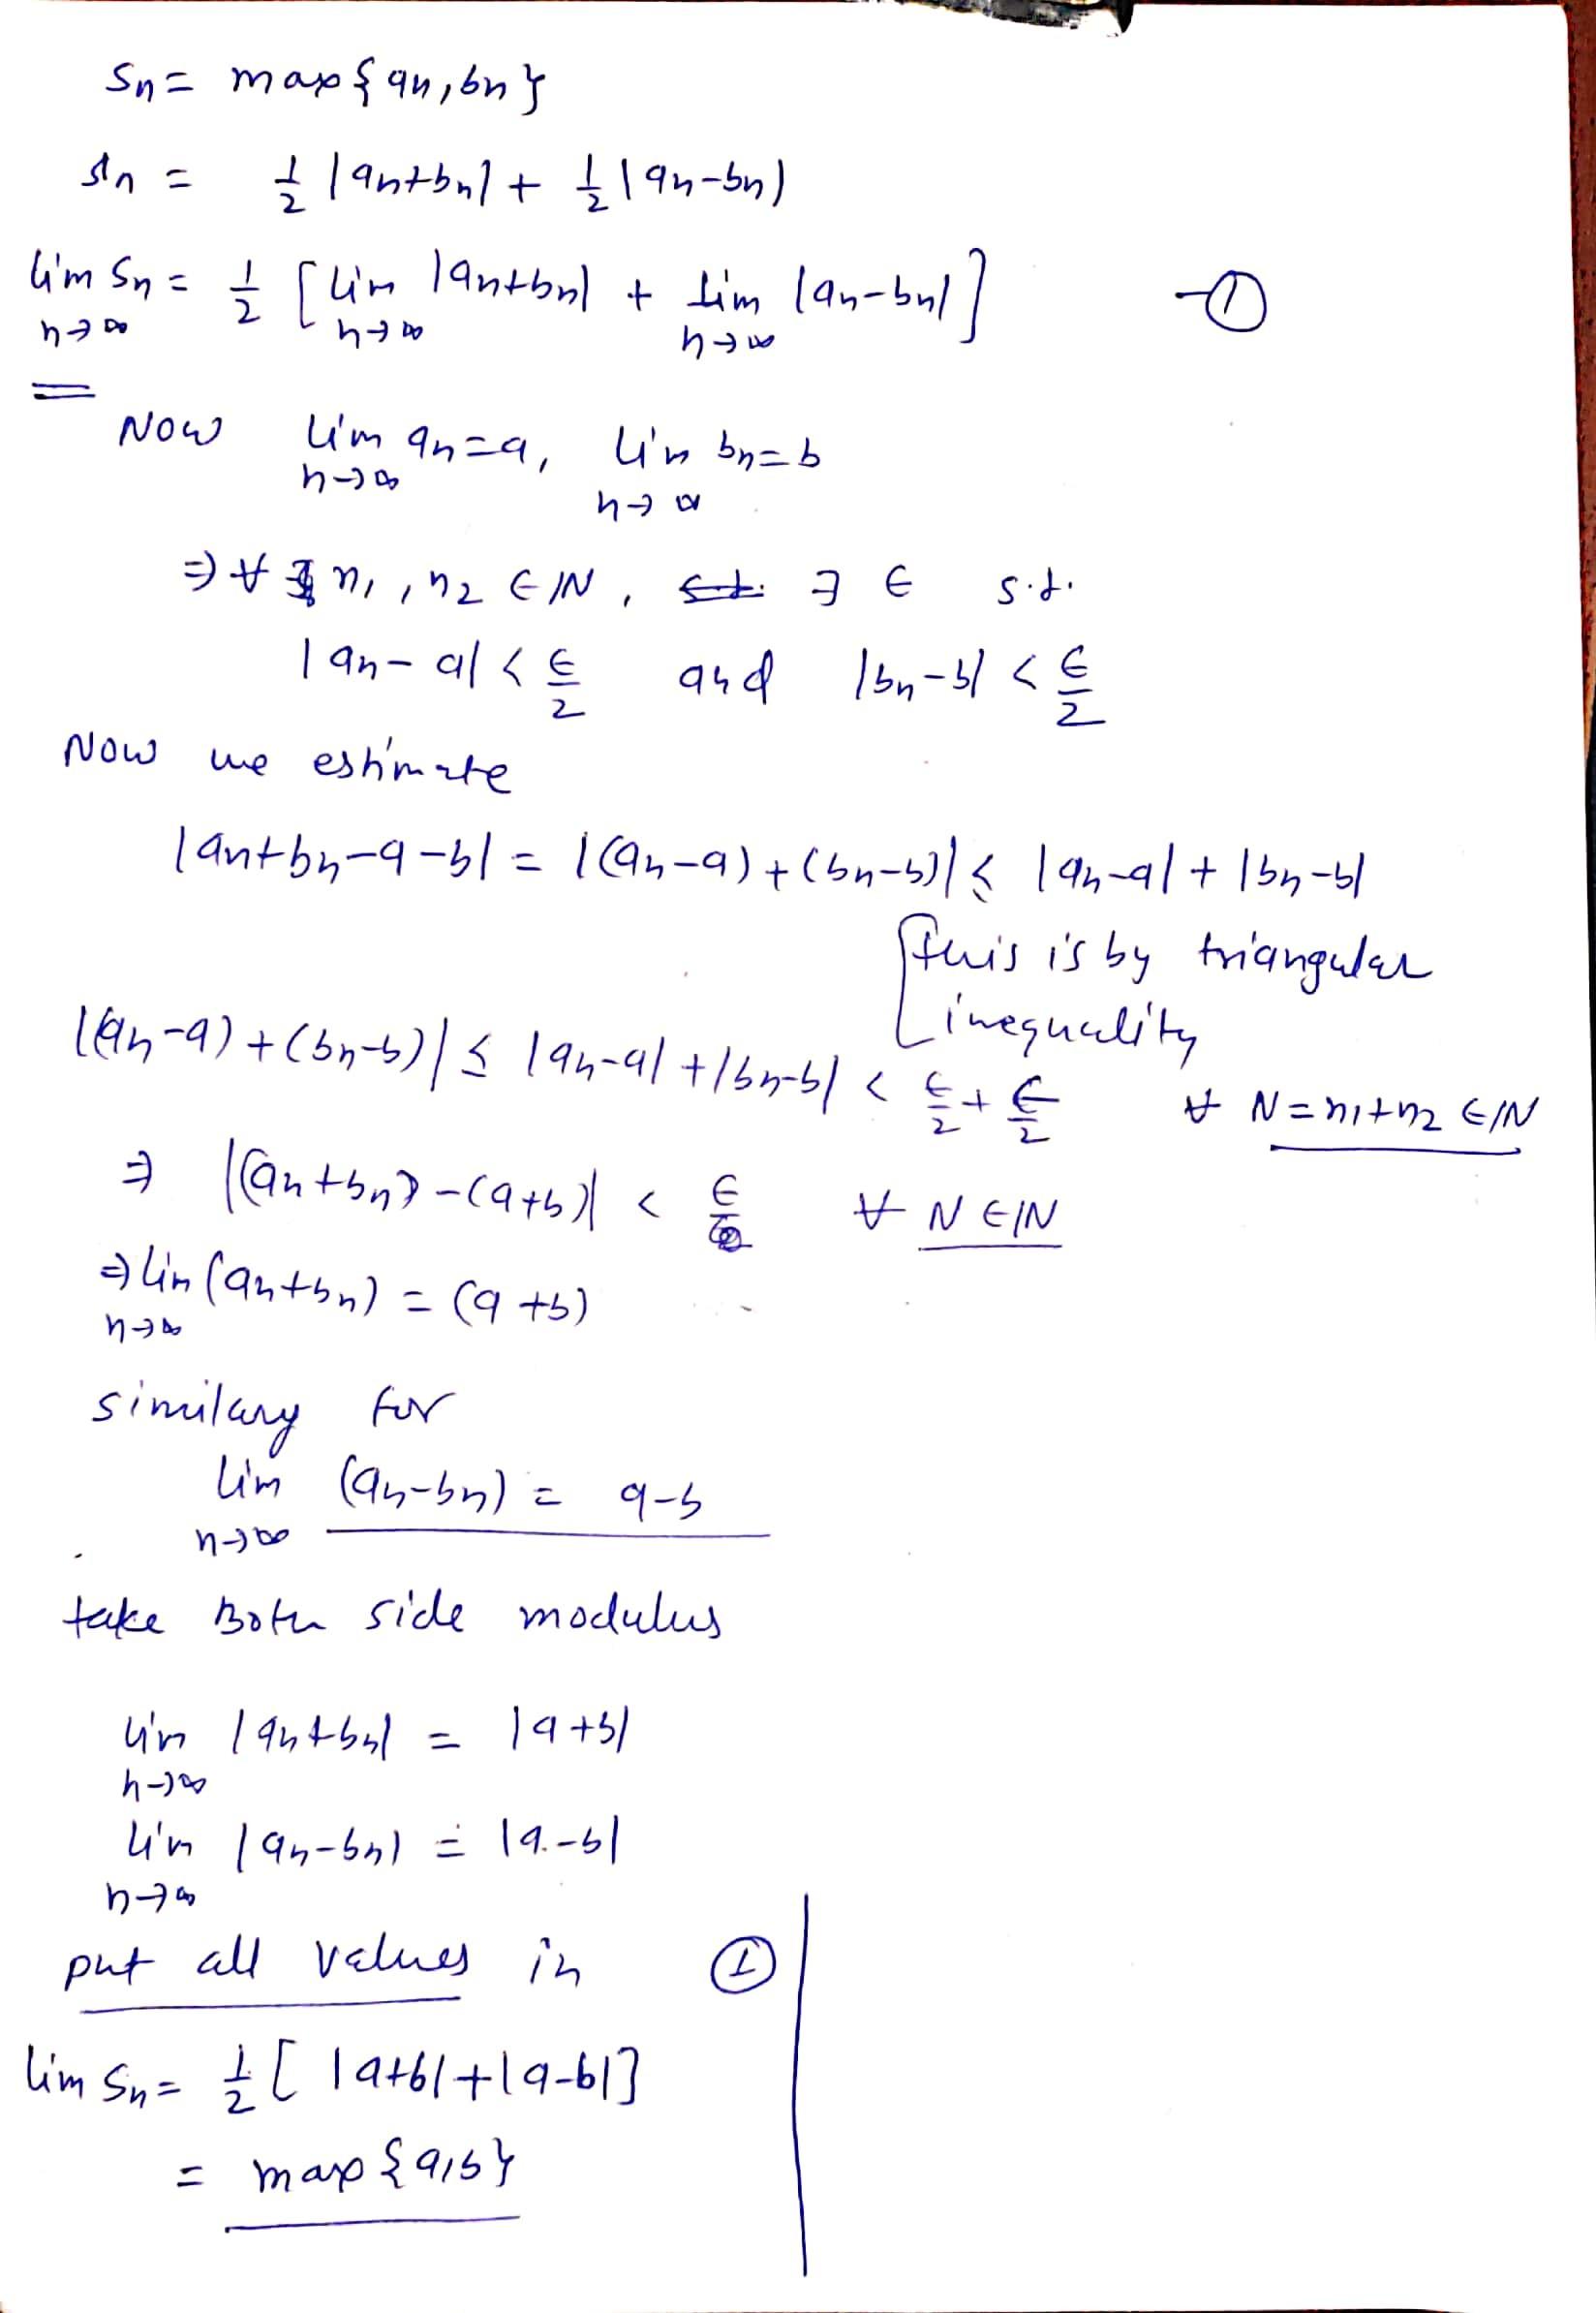 Sn = max{an, bn}
sn = 1/2 |an+bn| + 1/2 |an-bn)
lim Sn = 1/2 [lim |an+bn| + lim |an-bn|] —①
n→∞ n→∞ n→∞
Now lim an=a, lim bn=b
n→∞ n→∞
⇒ ∀ n1, n2 ∈ IN, ∃ ∈ s.t.
|an-a| < ∈/2 and |bn-b| < ∈/2
Now we estimate
|an+bn-a-b| = |(an-a)+(bn-b)| ≤ |an-a| + |bn-b|
[this is by triangular
inequality
|(an-a)+(bn-b)| ≤ |an-a| + |bn-b| < ∈/2 + ∈/2 ∀ N=n1+n2 ∈ IN
⇒ |(an+bn)-(a+b)| < ∈ ∀ N ∈ IN
⇒ lim (an+bn) = (a+b)
n→∞
similary for
lim (an-bn) = a-b
n→∞
take Both side modulus
lim |an+bn| = |a+b|
n→∞
lim |an-bn| = |a-b|
n→∞
put all values in ①
lim Sn = 1/2 [ |a+b|+|a-b|]
= max {a,b}